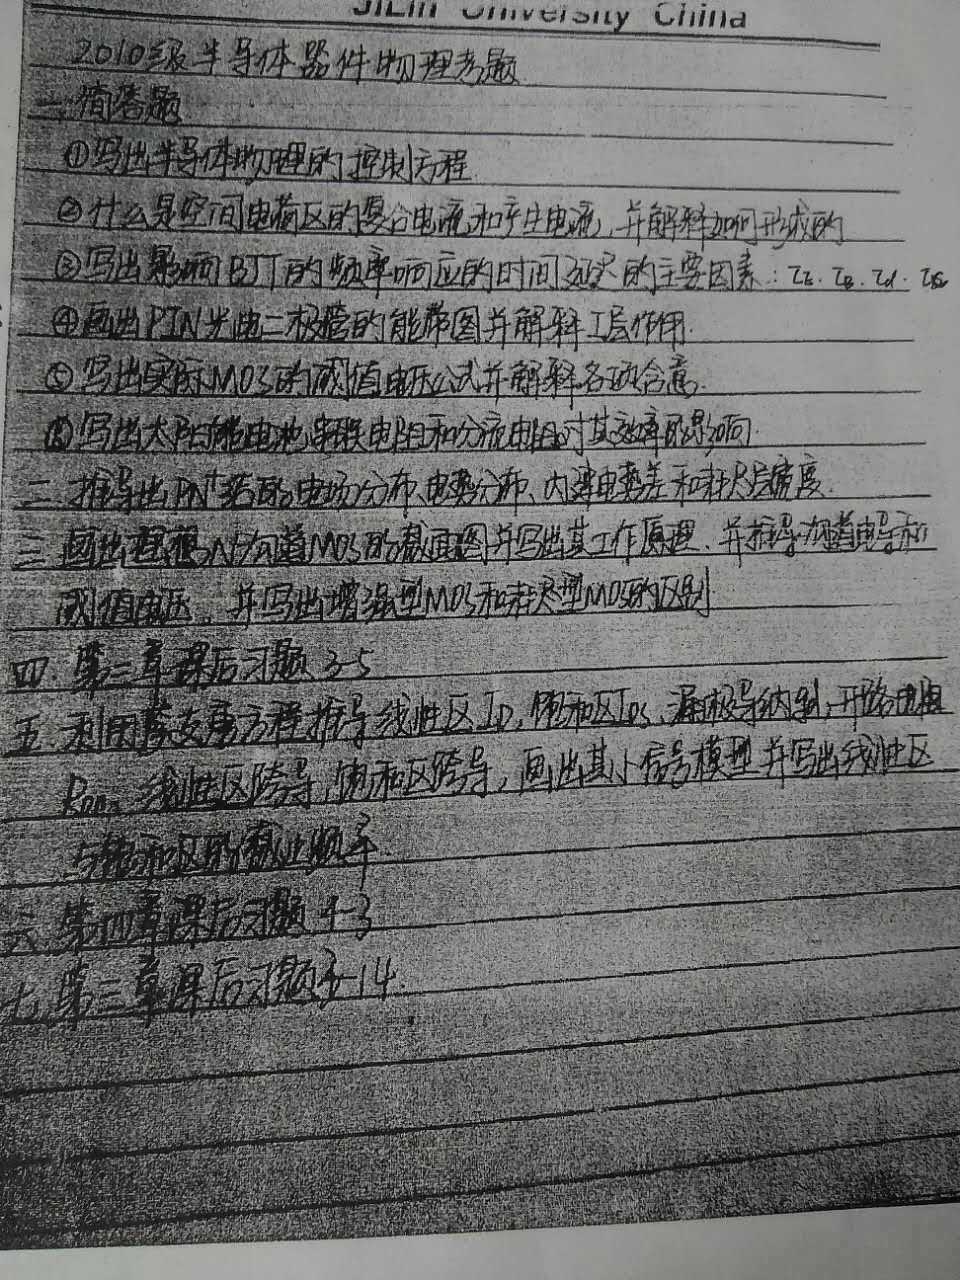 JiLin University China
2010级半导体器件物理考题
一.简答题
①写出半导体物理的控制方程
②什么是空间电荷区的复合电流和产生电流,并解释如何形成的
③写出影响BJT的频率响应的时间延迟的主要因素:τE.τB.τd.τC
④画出PIN光电二极管的能带图并解释I层作用.
⑤写出实际MOS的阈值电压公式并解释各项含意.
⑥写出太阳能电池串联电阻和分流电阻对其效率的影响.
二.推导出PN⁺结的电场分布、电势分布、内建电势差和耗尽层宽度.
三.画出理想N沟道MOS的截面图并写出其工作原理.并推导沟道电导和
阈值电压,并写出增强型MOS和耗尽型MOS的区别
四.第三章课后习题3-5
五.利用萨支唐方程推导线性区ID,饱和区IDS,漏极导纳,开路电阻
Ron,线性区跨导,饱和区跨导,画出其小信号模型并写出线性区
与饱和区的截止频率
六.第四章课后习题4-3
七.第三章课后习题3-14